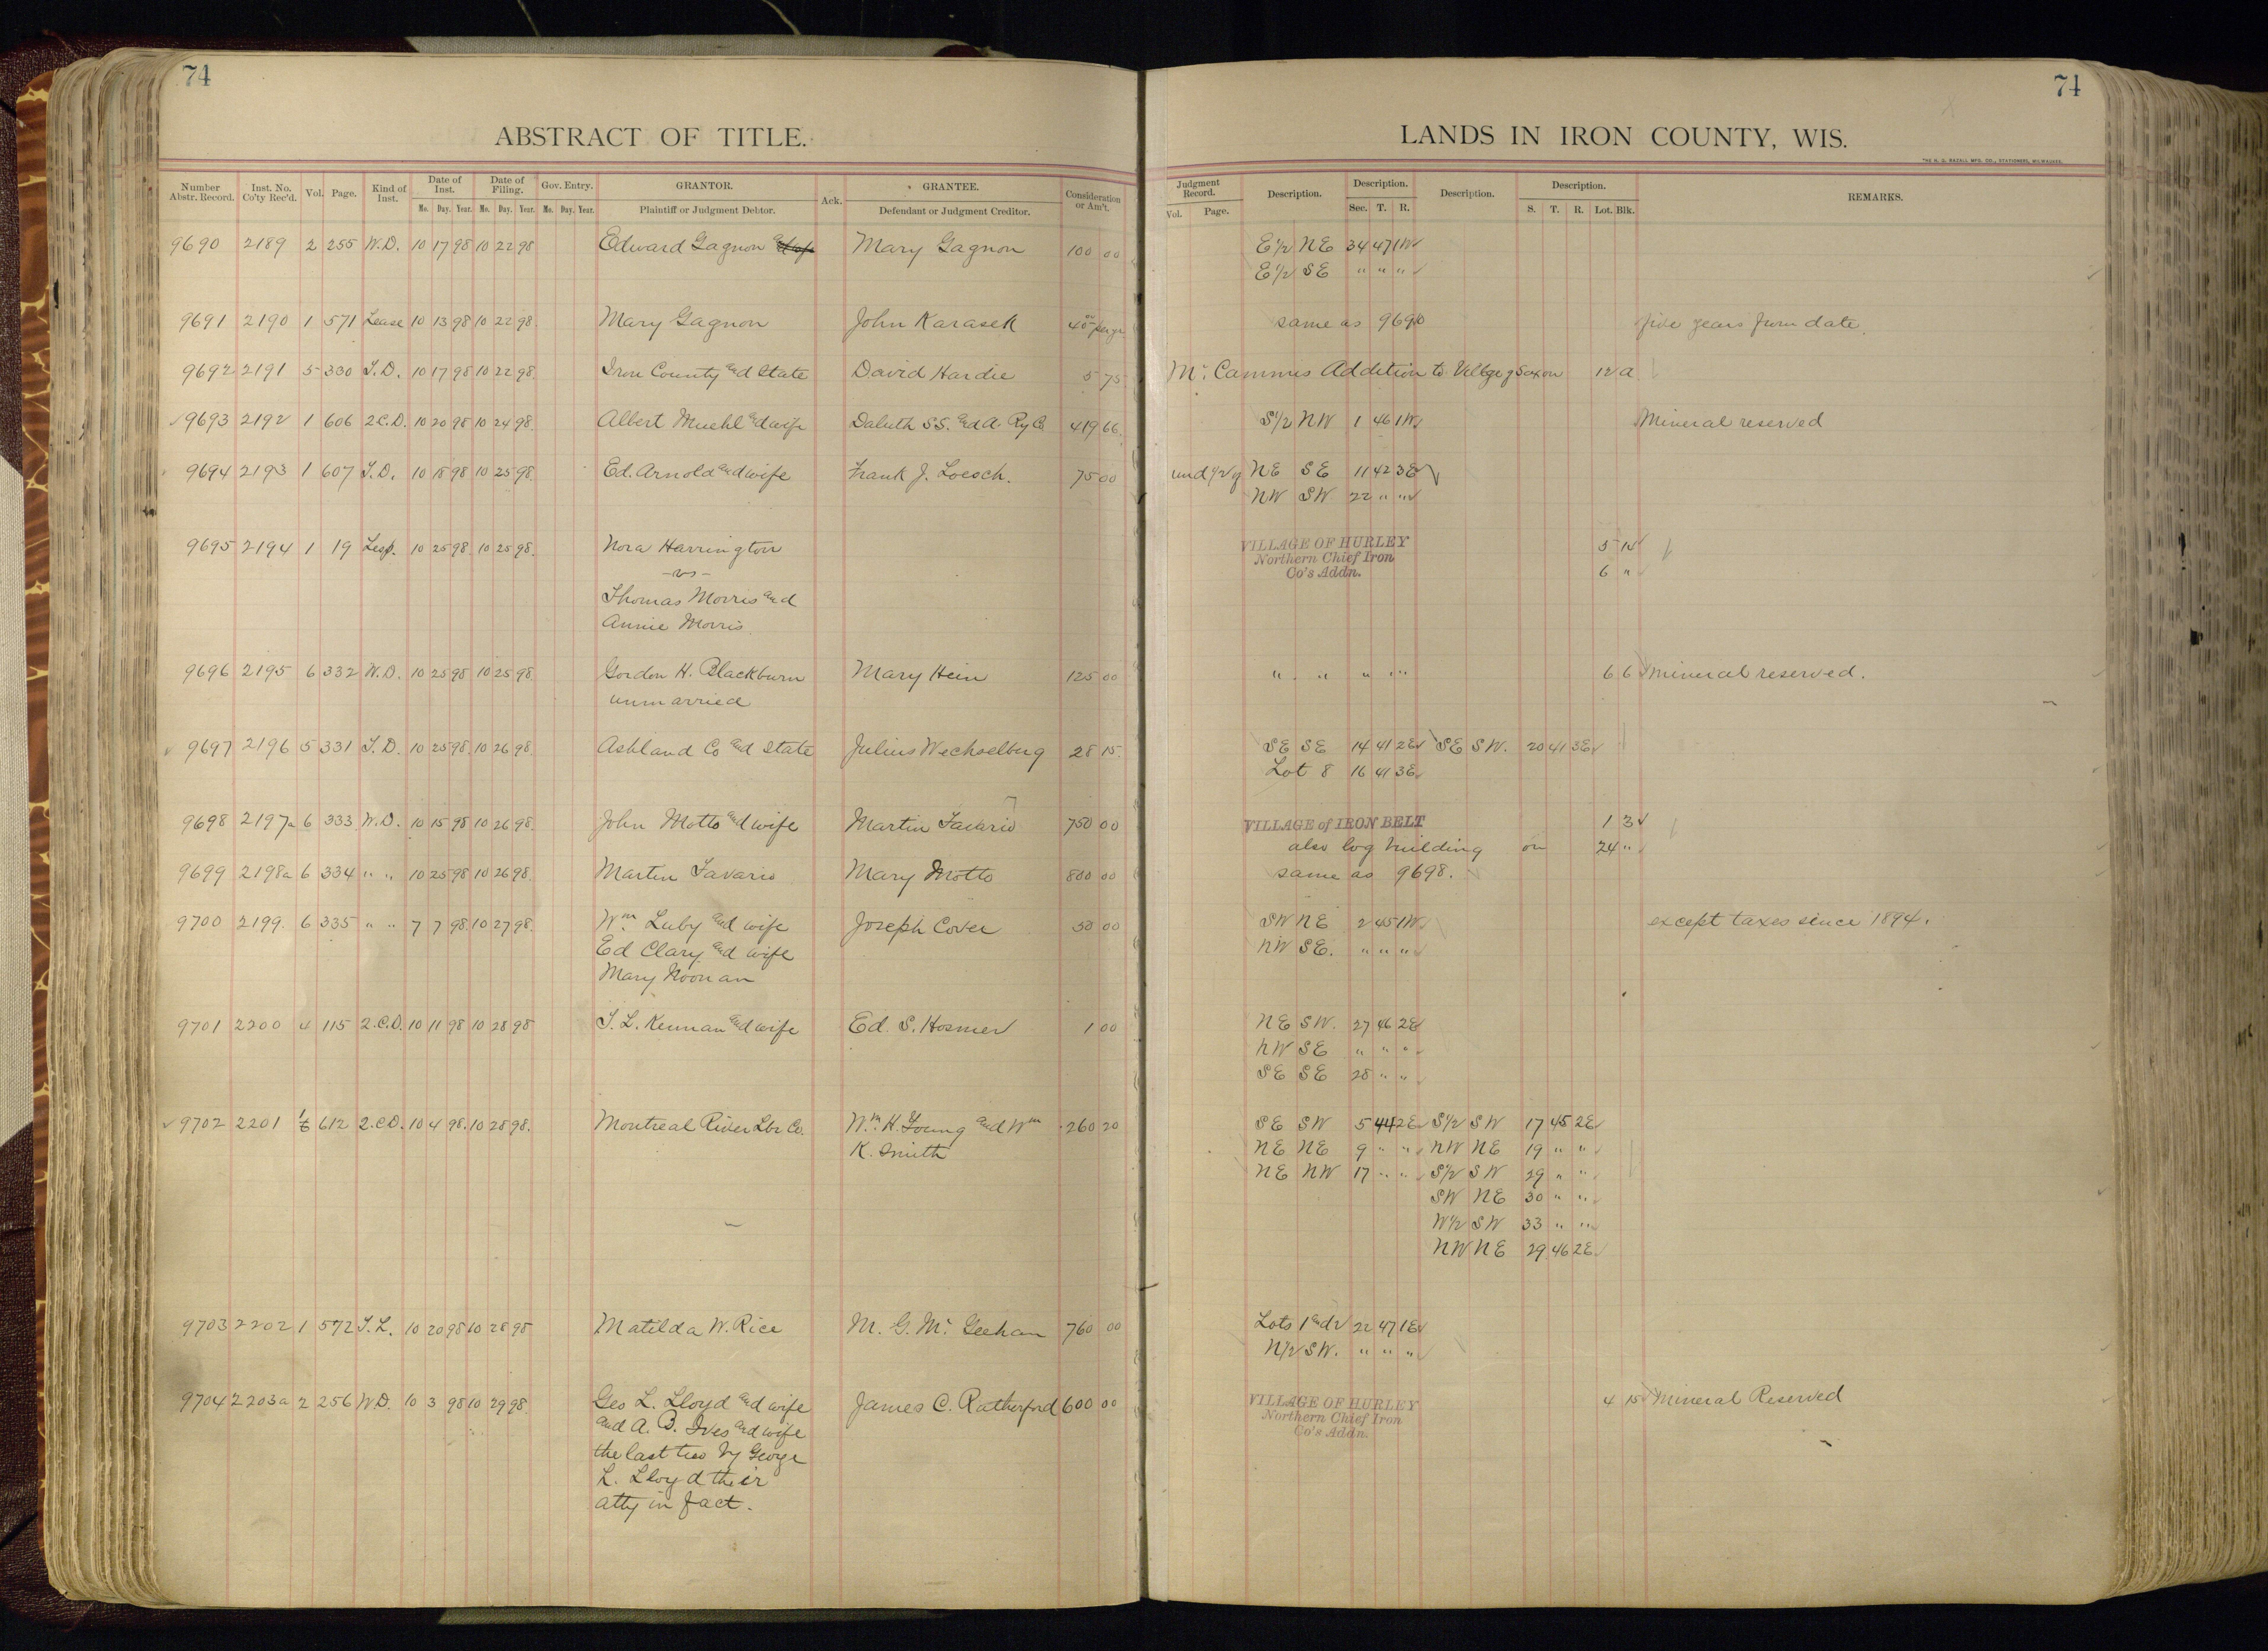 74
ABSTRACT OF TITLE.
Number Abstr. Record. Inst. No. Co'ty Rec'd. Vol. Page. Kind of Inst. Date of Inst. Mo. Day. Year. Date of Filing. Mo. Day. Year. Gov. Entry. Mo. Day. Year. GRANTOR. Plaintiff or Judgment Debtor. Ack. GRANTEE. Defendant or Judgment Creditor. Consideration or Am't.
9690 2189 2 255 W.D. 10 17 98 10 22 98 Edward Gagnon Mary Gagnon 100 00
9691 2190 1 571 Lease 10 13 98 10 22 98 Mary Gagnon John Karasek 40 00 per yr.
9692 2191 5 330 T.D. 10 17 98 10 22 98 Iron County and State David Hardie 5 75
9693 2192 1 606 2.C.D. 10 20 98 10 24 98 Albert Muehl and wife Duluth S.S. and A. Ry Co 419 66
9694 2193 1 607 T.D. 10 18 98 10 25 98 Ed. Arnold and wife Frank J. Loesch. 75 00
9695 2194 1 19 Lesp. 10 25 98 10 25 98 Nora Harrington
-vs-
Thomas Morris and
Annie Morris.
9696 2195 6 332 W.D. 10 25 98 10 25 98 Gordon H. Blackburn Mary Hein 125 00
unmarried
9697 2196 5 331 T.D. 10 25 98 10 26 98 Ashland Co and State Julius Wechselberg 28 15
9698 2197a 6 333 W.D. 10 15 98 10 26 98 John Motto and wife Martin Tavario 750 00
9699 2198a 6 334 " " 10 25 98 10 26 98 Martin Tavario Mary Motto 800 00
9700 2199. 6 335 " " 7 7 98 10 27 98 Wm. Luby and wife Joseph Cover 50 00
Ed Clary and wife
Mary Noonan
9701 2200 4 115 2.C.D. 10 11 98 10 28 98 T. L. Kennan and wife Ed. S. Hosmer 1 00
9702 2201 612 2.C.D. 10 4 98 10 28 98 Montreal River Lbr Co. Wm. H. Young and Wm 260 20
K. Smith
9703 2202 1 572 T.L. 10 20 98 10 28 98 Matilda W. Rice M. G. Mc Geehan 760 00
9704 2203a 2 256 W.D. 10 3 98 10 29 98 Geo L. Lloyd and wife James C. Rutherford 600 00
and A. B. Ives and wife
the last two by George
L. Lloyd their
atty in fact.
74
LANDS IN IRON COUNTY, WIS.
THE H. G. RAZALL MFG. CO., STATIONERS, MILWAUKEE.
Judgment Record. Vol. Page. Description. Description. Sec. T. R. Description. Description. S. T. R. Lot. Blk. REMARKS.
E1/2 NE 34 47 1W
E1/2 SE " " "
same as 9690 five years from date.
Mc. Cammis Addition to Village of Saxon 12 A
S1/2 NW 1 46 1W Mineral reserved
und 1/2 of NE SE 11 42 3E
NW SW 22 " "
VILLAGE OF HURLEY 5 14
Northern Chief Iron
Co's Addn. 6 "
" " " " " 6 6 Mineral reserved.
SE SE 14 41 2E SE SW. 20 41 3E
Lot 8 16 41 3E
VILLAGE of IRON BELT 1 3
also log building on 24 "
same as 9698.
SW NE 2 45 1W except taxes since 1894.
NW SE. " " "
NE SW. 27 46 2E
NW SE " " "
SE SE 28 " "
SE SW 5 44 2E S1/2 SW 17 45 2E
NE NE 9 " " NW NE 19 " "
NE NW 17 " " S1/2 SW 29 " "
SW NE 30 " "
W1/2 SW 33 " "
NW NE 29 46 2E
Lots 1 and 2 22 47 1E
N1/2 SW. " " "
VILLAGE OF HURLEY 4 15 Mineral Reserved
Northern Chief Iron
Co's Addn.